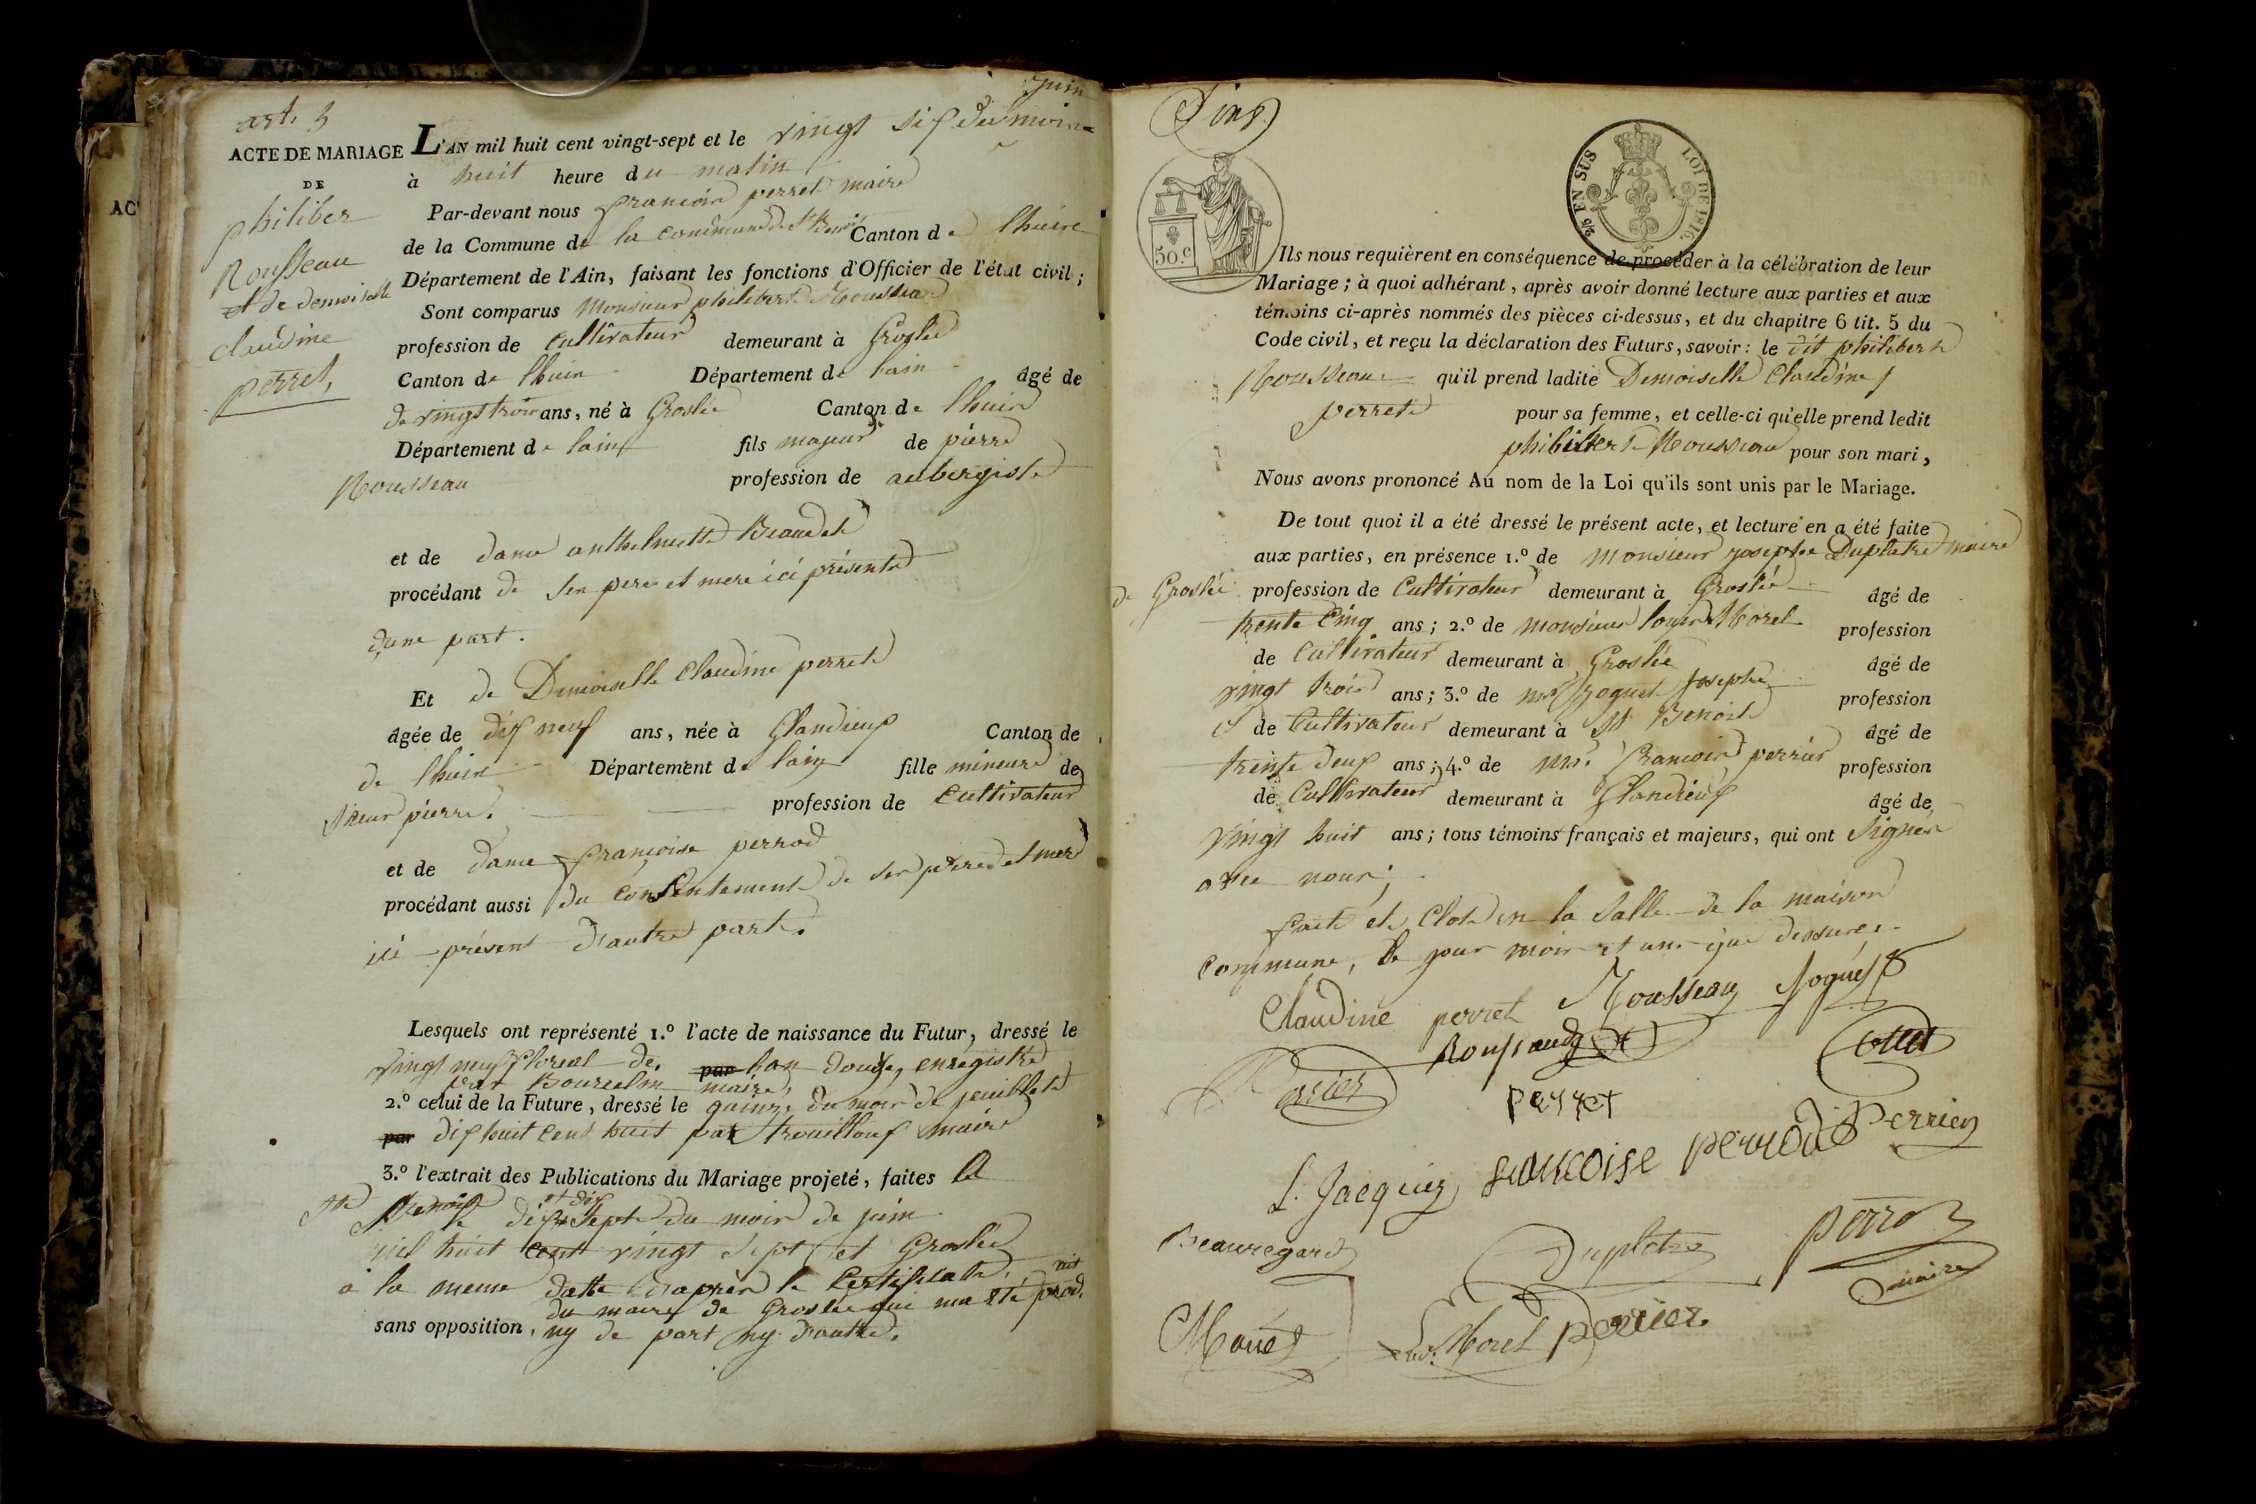 art. 3
ACTE DE MARIAGE
DE
philiber
Rousseau
et de demoiselle
claudine
perret,
AC
juin
L'AN mil huit cent vingt-sept et le vingt six du mois
à huit heure du matin
Par-devant nous françois perret maire
de la Commune de la commune de St Benoit Canton de lhuire
Département de l'Ain, faisant les fonctions d'Officier de l'état civil;
Sont comparus Monsieur philibert Rousseau
profession de cultivateur demeurant à Groslée
Canton de lhuin Département de lain âgé de
de vingt trois ans, né à Groslée Canton de lhuin
Département de lain fils majeur de pierre
Rousseau profession de aubergiste
et de dame anthelmette Beaudet
procédant de ses pere et mere ici présents
d'une part.
Et de Demoiselle Claudine perret
âgée de dix neuf ans, née à Glandieux Canton de
de lhuin Département de lain fille mineure de
sieur pierre. profession de cultivateur
et de dame françoise perrod
procédant aussi du consentement de ses père et mere
ici présent d'autre part.
Lesquels ont représenté 1.º l'acte de naissance du Futur, dressé le
vingt neuf floreal de par lan douze, enregistré
par maire,
2.º celui de la Future, dressé le quinze du mois de juillet
par dix huit cent huit par trouilloux maire
3.º l'extrait des Publications du Mariage projeté, faites a
St Benoist le dix et dix sept du mois de juin
mil huit cent vingt sept et Groslée
a la meme datte d'après le certificat
du maire de Groslée qui m'a été prod.
sans opposition, ny de part ny d'autre.
50.c
2/5 EN SUS LOI DE 1816.
Ils nous requièrent en conséquence de procéder à la célébration de leur
Mariage; à quoi adhérant, après avoir donné lecture aux parties et aux
témoins ci-après nommés des pièces ci-dessus, et du chapitre 6 tit. 5 du
Code civil, et reçu la déclaration des Futurs, savoir: le dit philibert
Rousseau qu'il prend ladite Demoiselle Claudine
perret pour sa femme, et celle-ci qu'elle prend ledit
philibert Rousseau pour son mari,
Nous avons prononcé Au nom de la Loi qu'ils sont unis par le Mariage.
De tout quoi il a été dressé le présent acte, et lecture en a été faite
aux parties, en présence 1.º de Monsieur josephe Duplatre maire
de Groslée profession de Cultivateur demeurant à Groslée âgé de
trente cinq ans; 2.º de monsieur louis Morel profession
de cultivateur demeurant à Groslée âgé de
vingt trois ans; 3.º de mr joguet josephe profession
de Cultivateur demeurant à St Benoist âgé de
trente deux ans; 4.º de mr. françois perrier profession
de Cultivateur demeurant à Glandieux âgé de
vingt huit ans; tous témoins français et majeurs, qui ont signés
avec nous;
fait et clos en la salle de la maison
commune, le jour mois et ans que dessures.
Claudine perret Rousseau joguet
Rousseaud
perret
f. Jacquier francoise perrod Perrier
Beauregard Duplatre perret
maire
Ls. Morel perrier